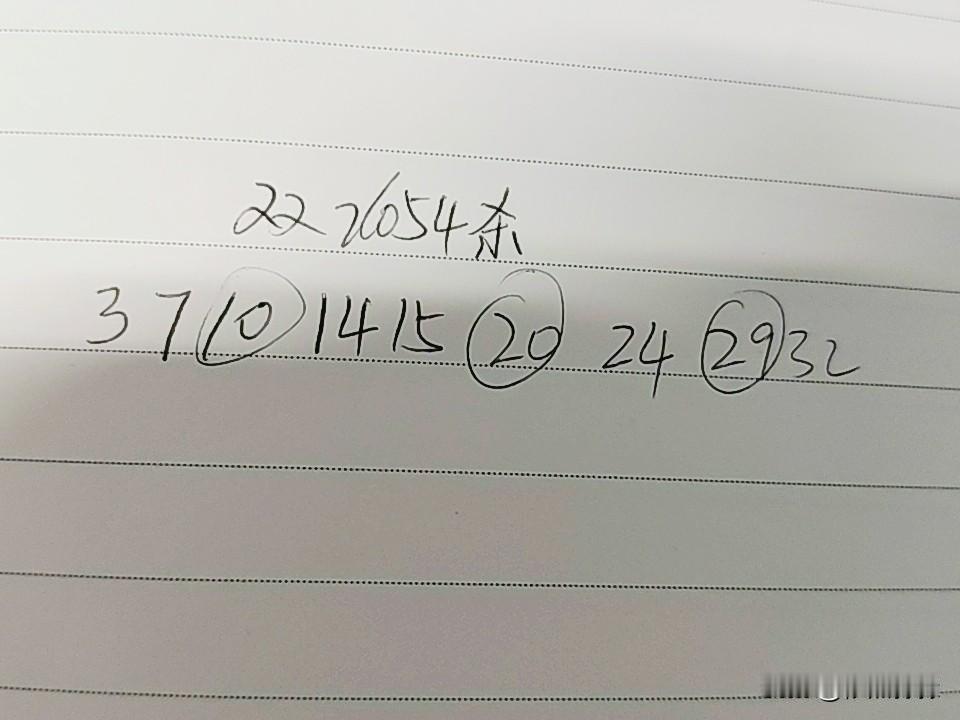 22 26054杀
3 7 10 14 15 20 24 29 32